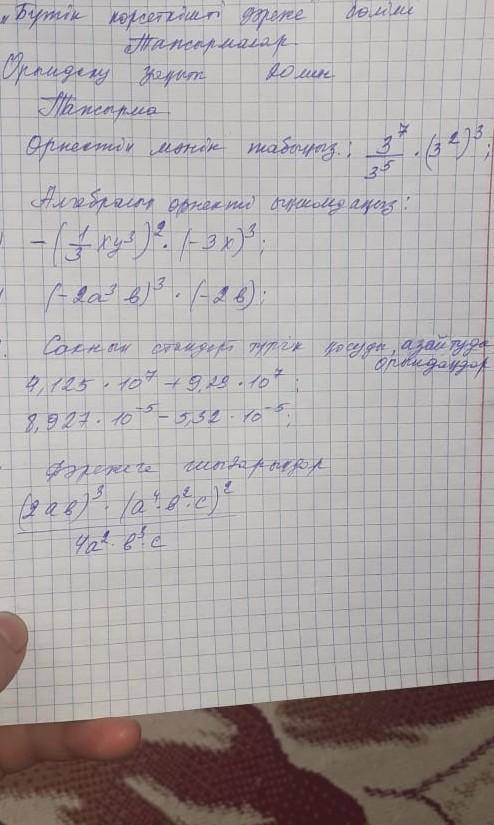 „Бүтін көрсеткішті дәреже бөлімі
Тапсырмалар
Орындау уақыт 20 мин
Тапсырма
Өрнектің мәнін табыңыз: 3⁷/3⁵ · (3²)³;
Алгебралық өрнекті ықшамдаңыз:
- (1/3 xy³)² · (-3x)³;
(-2a³b)³ · (-2b);
Санның стандарт түрін қосуды, азайтуды орындаңдар
4,125 · 10⁷ + 9,29 · 10⁷;
8,927 · 10⁻⁵ - 5,32 · 10⁻⁵;
дәрежеге шығарыңдар
(2ab)³ · (a⁴·b²·c)²
4a²·b³·c